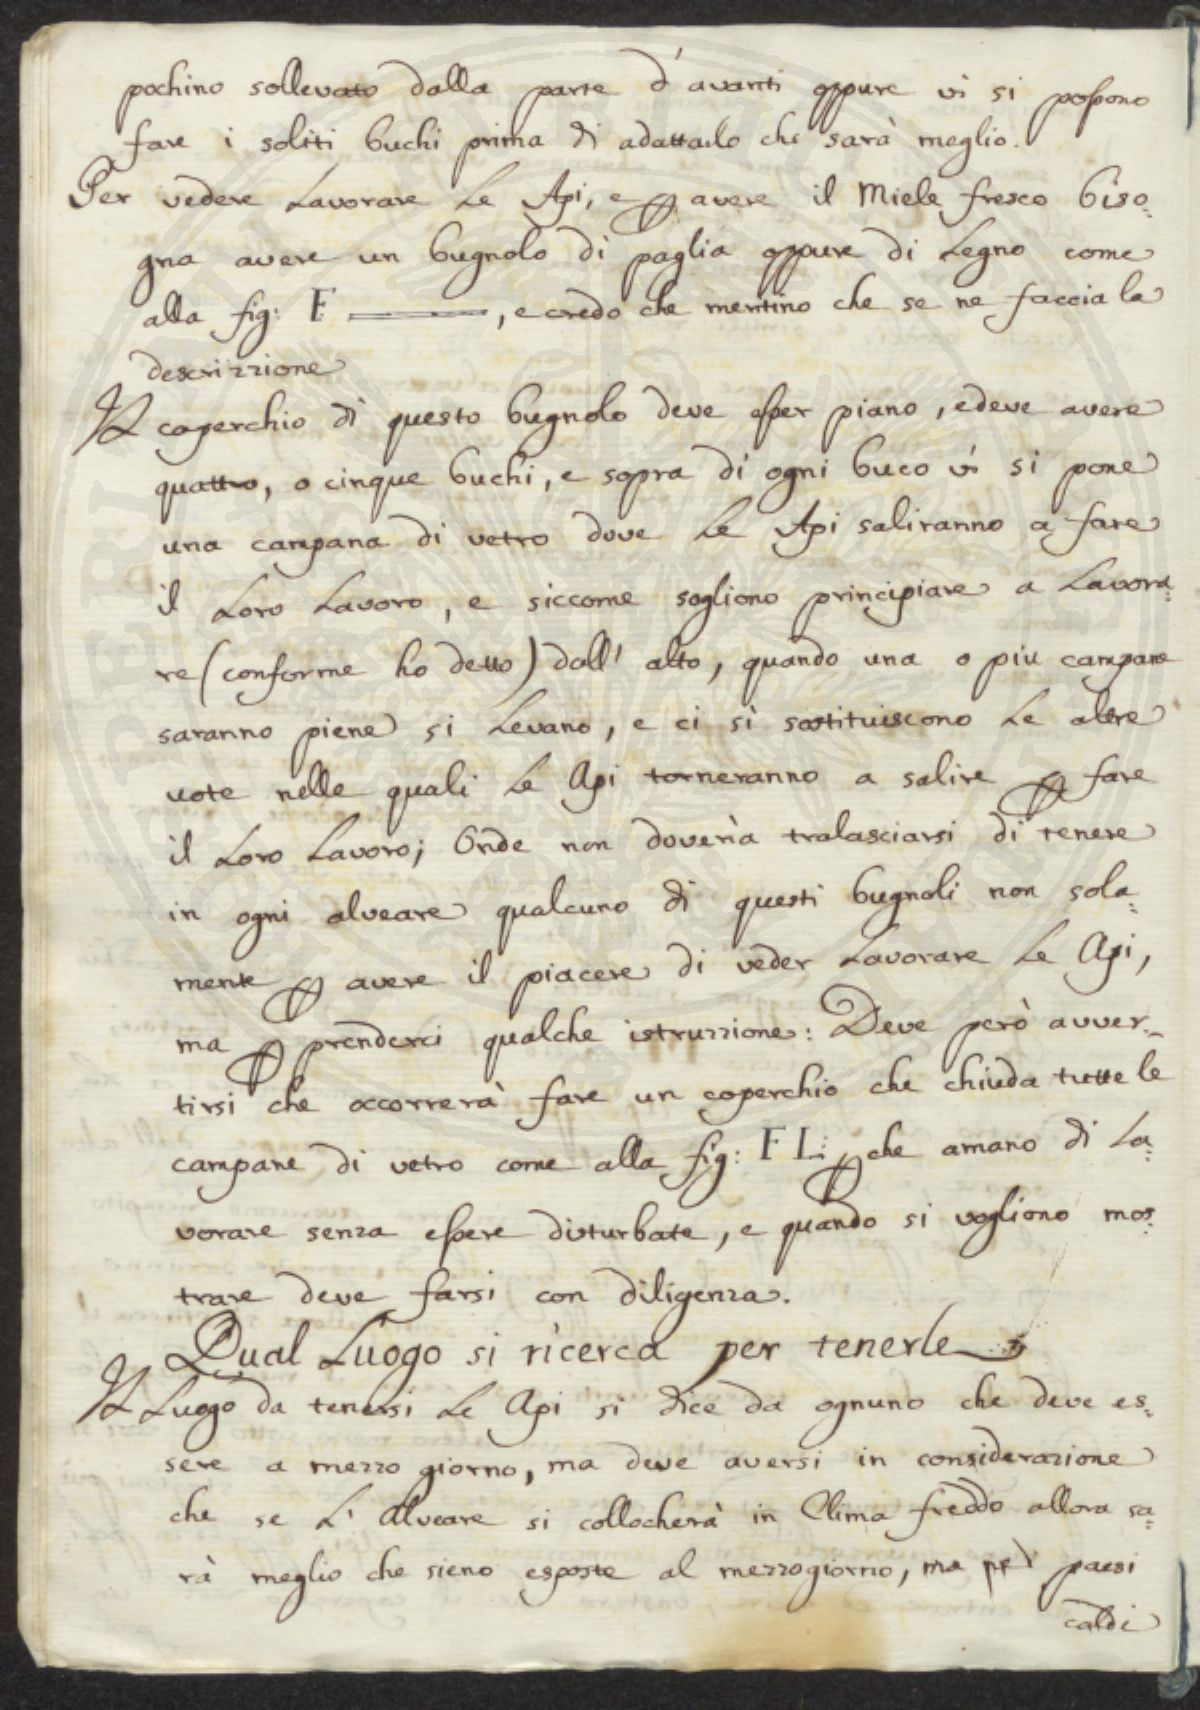 pochino sollevato dalla parte d'avanti oppure vi si possono
fare i soliti buchi prima di adattarlo che sarà meglio.
Per vedere Lavorare Le Api, e ꝑ avere il Miele fresco biso=
gna avere un bugnolo di paglia oppure di Legno come
alla fig: F ———, e credo che meritino che se ne faccia la
descrizzione
Il coperchio di questo bugnolo deve esser piano, e deve avere
quattro, o cinque buchi, e sopra di ogni buco vi si pone
una campana di vetro dove Le Api saliranno a fare
il Loro Lavoro, e siccome sogliono principiare a Lavora=
re (conforme ho detto) dall' alto, quando una o piu campane
saranno piene si Levano, e ci si sostituiscono Le altre
vote nelle quali Le Api torneranno a salire ꝑ fare
il Loro Lavoro; Onde non doverìa tralasciarsi di tenere
in ogni alveare qualcuno di questi bugnoli non sola=
mente ꝑ avere il piacere di veder Lavorare Le Api,
ma ꝑ prenderci qualche istruzzione: Deve però avver=
tirsi che occorrerà fare un coperchio che chiuda tutte le
campane di vetro come alla fig: F L: ꝑ che amano di La=
vorare senza essere disturbate, e quando si vogliono mos=
trare deve farsi con diligenza.
Qual Luogo si ricerca per tenerle
Il Luogo da tenersi Le Api si dice da ognuno che deve es=
sere a mezzo giorno, ma deve aversi in considerazione
che se L' Alveare si collocherà in Clima freddo allora sa=
rà meglio che sieno esposte al mezzogiorno, ma pei paesi
caldi